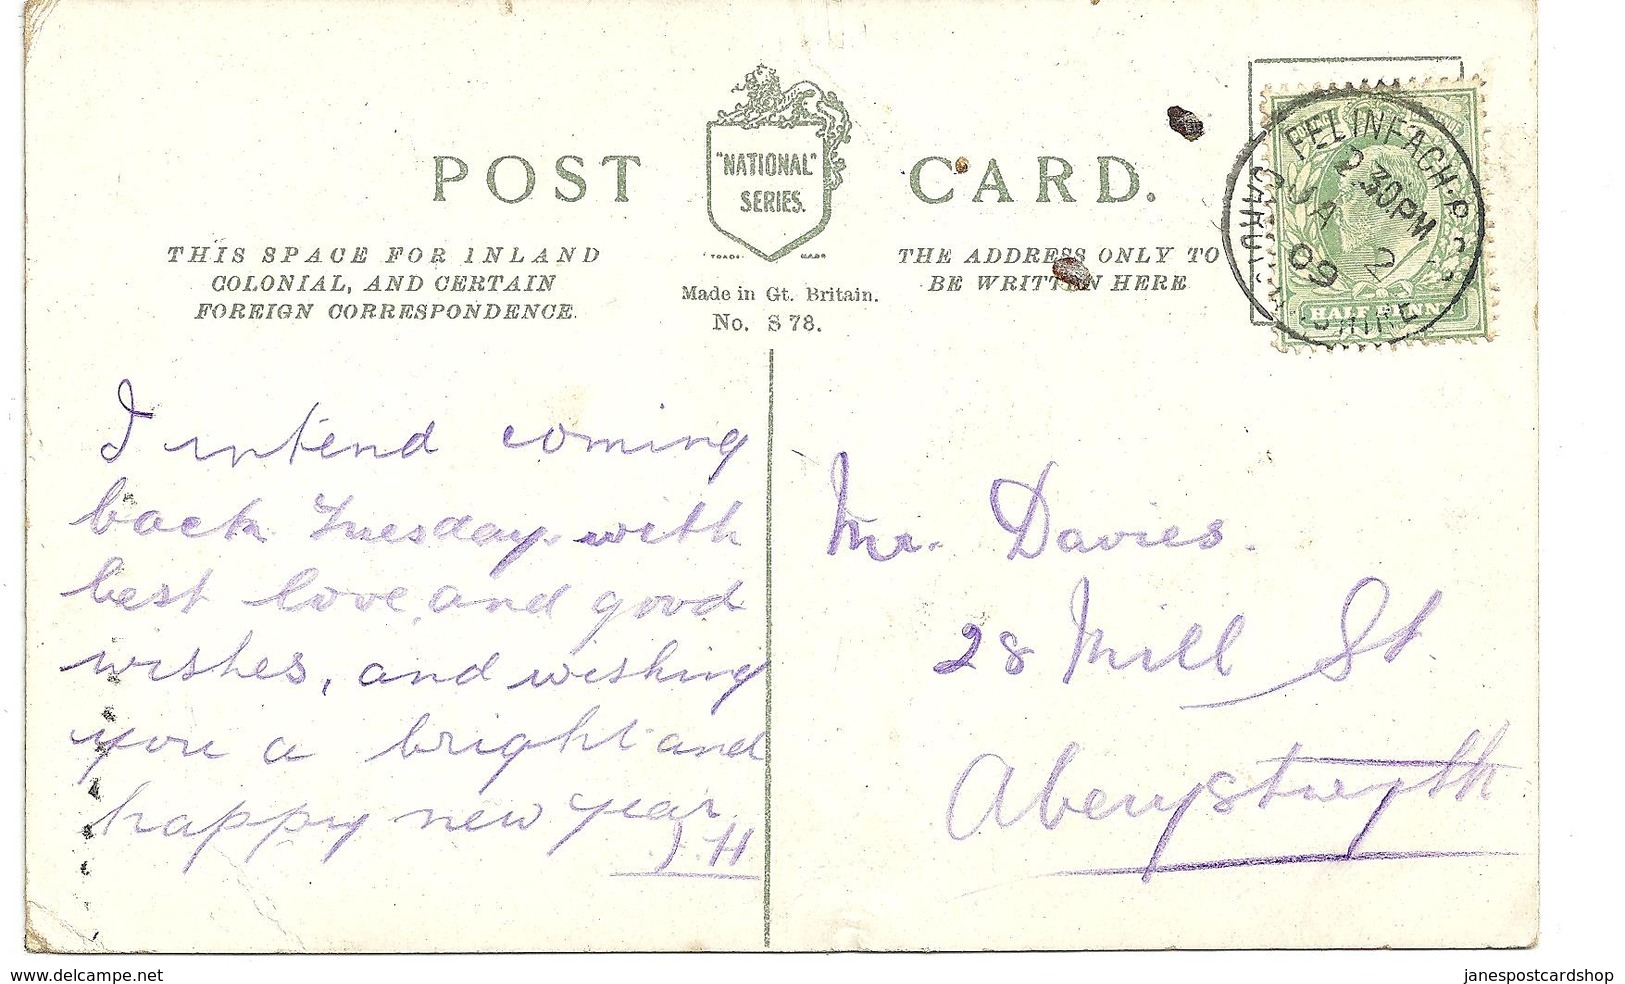 POST CARD.
"NATIONAL"
SERIES.
TRADE MARK
THIS SPACE FOR INLAND
COLONIAL, AND CERTAIN
FOREIGN CORRESPONDENCE.
Made in Gt. Britain.
No. S 78.
THE ADDRESS ONLY TO
BE WRITTEN HERE
FELINFACH
2.30PM
JA 2
09
HALF PENNY
I intend coming
back Tuesday. with
best love and good
wishes, and wishing
you a bright and
happy new year
J.H
Mr. Davies.
28 Mill St.
Aberystwyth
www.delcampe.net
janespostcardshop